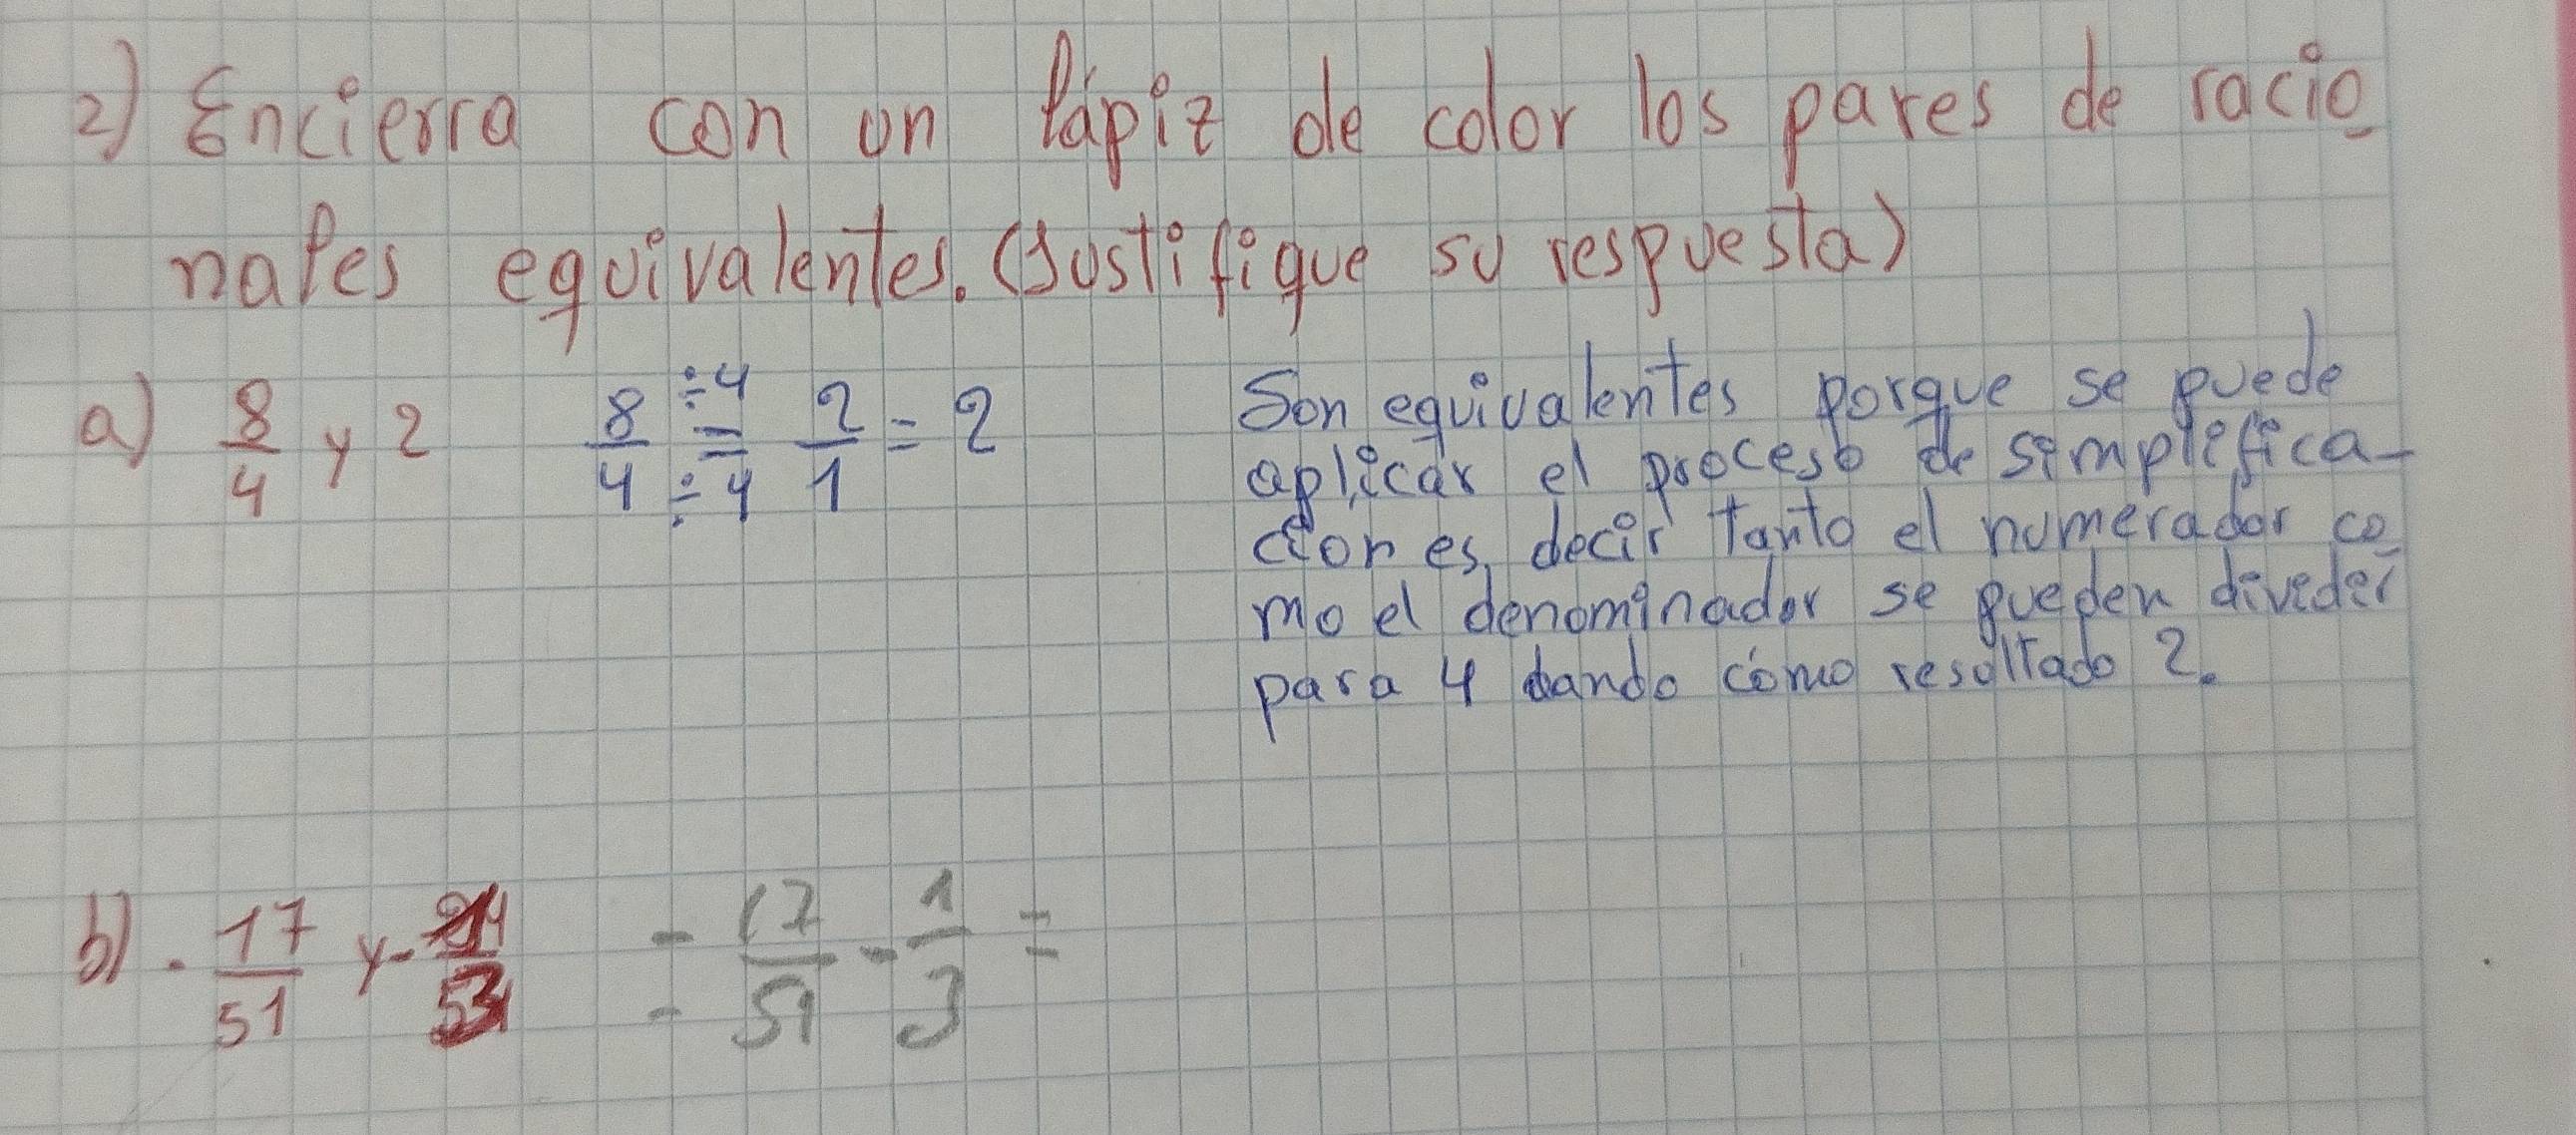 2) Encierra con un lápiz de color los pares de racio-
nales equivalentes. (Justifique su respuesta)
a) 8/4 y 2 8/4 ÷4/÷4 = 2/1 = 2
Son equivalentes porque se puede
aplicar el proceso de simplifica-
cion es decir tanto el numerador co-
mo el denominador se pueden divider
para 4 dando como resultado 2.
b) - 17/51 y - - 17/51 - 1/3 =